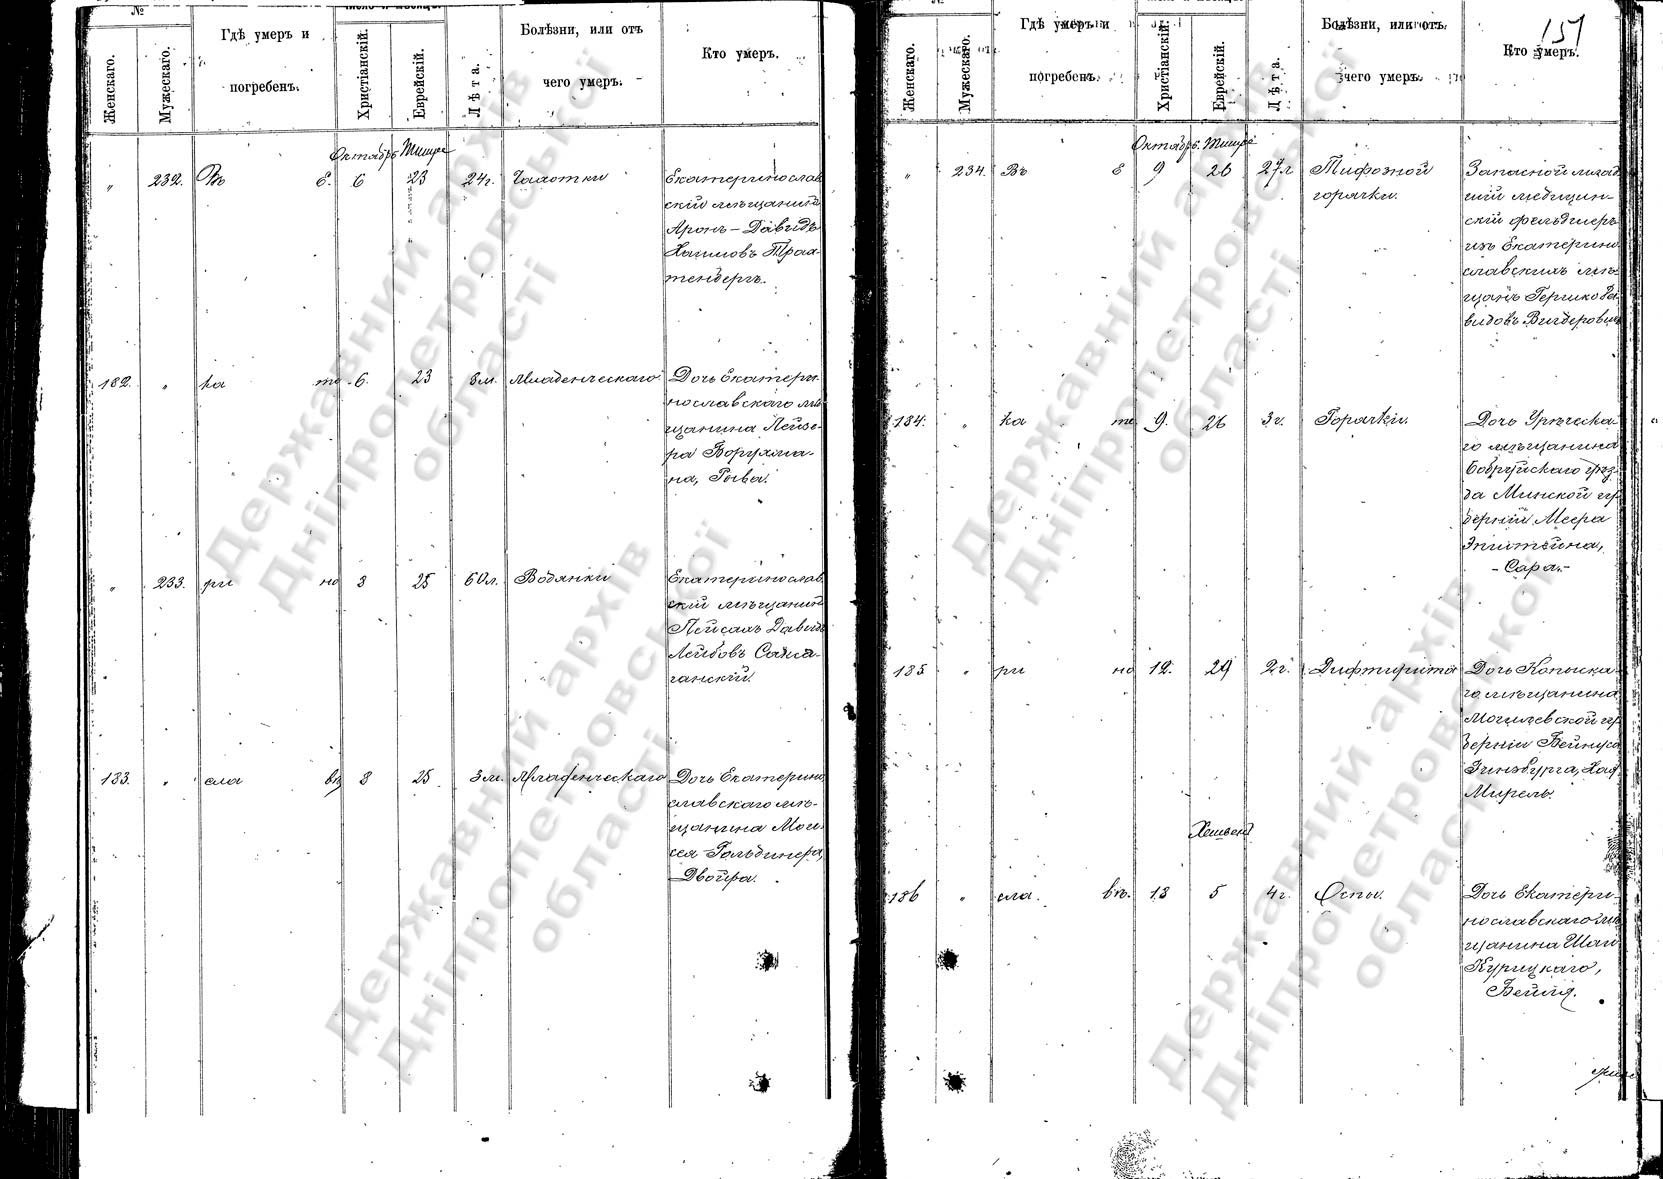 №
Женскаго.
Мужескаго.
Гдѣ умеръ и
погребенъ.
Христіанскій.
Еврейскій.
Лѣта.
Болѣзни, или отъ
чего умеръ.
Кто умеръ.
Октябрь Тишре
„ 232. Въ Е. 6 23 24г. Чахотки
Екатеринослав
скій мѣщанинъ
Аронъ-Давидъ
Хаимовъ Трах-
тенбергъ.
182. „ ка те 6. 23 8м. Младенческаго
Дочь Екатери-
нославскаго мѣ
щанина Лейзе-
ра Борухма-
на, Рыва.
„ 233. ри но 8 25 60л. Водянки
Екатеринослав
скій мѣщанинъ
Пейсахъ Давидъ
Лейбовъ
ганскій.
183. „ сла въ 8 25 3м. Младенческаго
Дочь Екатерино
славскаго мѣ-
щанина Мои-
сея Гольдинера,
Двойра.
151
№
Женскаго.
Мужескаго.
Гдѣ умеръ и
погребенъ.
Христіанскій.
Еврейскій.
Лѣта.
Болѣзни, или отъ
чего умеръ.
Кто умеръ.
Октябрь. Тишре
„ 234. Въ Е 9 26 27л Тифозной
горячки.
Запасной млад
шій медицин-
скій фельдшеръ
изъ Екатерино
славскихъ мѣ-
щанъ Гершко Да
видовъ
184. „ ка те 9. 26 3г. Горячки.
Дочь
го мѣщанина
Бобруйскаго уѣз-
да Минской гу
берніи Меера
Эпштейна,
- Сара.-
185 „ ри но 12. 29 2г. Дифтирита
Дочь Копыска-
го мѣщанина
Могилевской гу
берніи Бейнуса
Гинзбурга, Хая
Мирель.
Хешвенъ
186 „ сла. въ. 18 5 4г. Оспы.
Дочь Екатери-
нославскаго мѣ
щанина Шаи
Курицкаго,
Бейля.
Державний архів
Дніпропетровської
області
Державний архів
Дніпропетровської
області
Державний архів
Дніпропетровської
області
Державний архів
Дніпропетровської
області